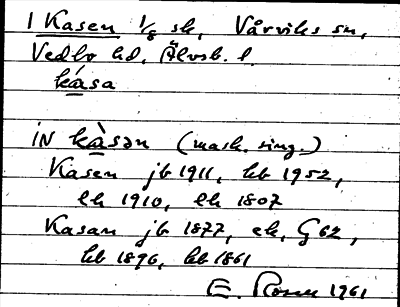 1 Kasen 1/8 sk, Vårviks sn,
Vedbo hd, Älvsb. l.
kása
IN kàsən (mask. sing.)
Kasen jb 1911, hb 1952,
ek 1910, ek 1807
Kasan jb 1877, ek, G62,
hb 1896, hb 1861
E. Rosen 1961